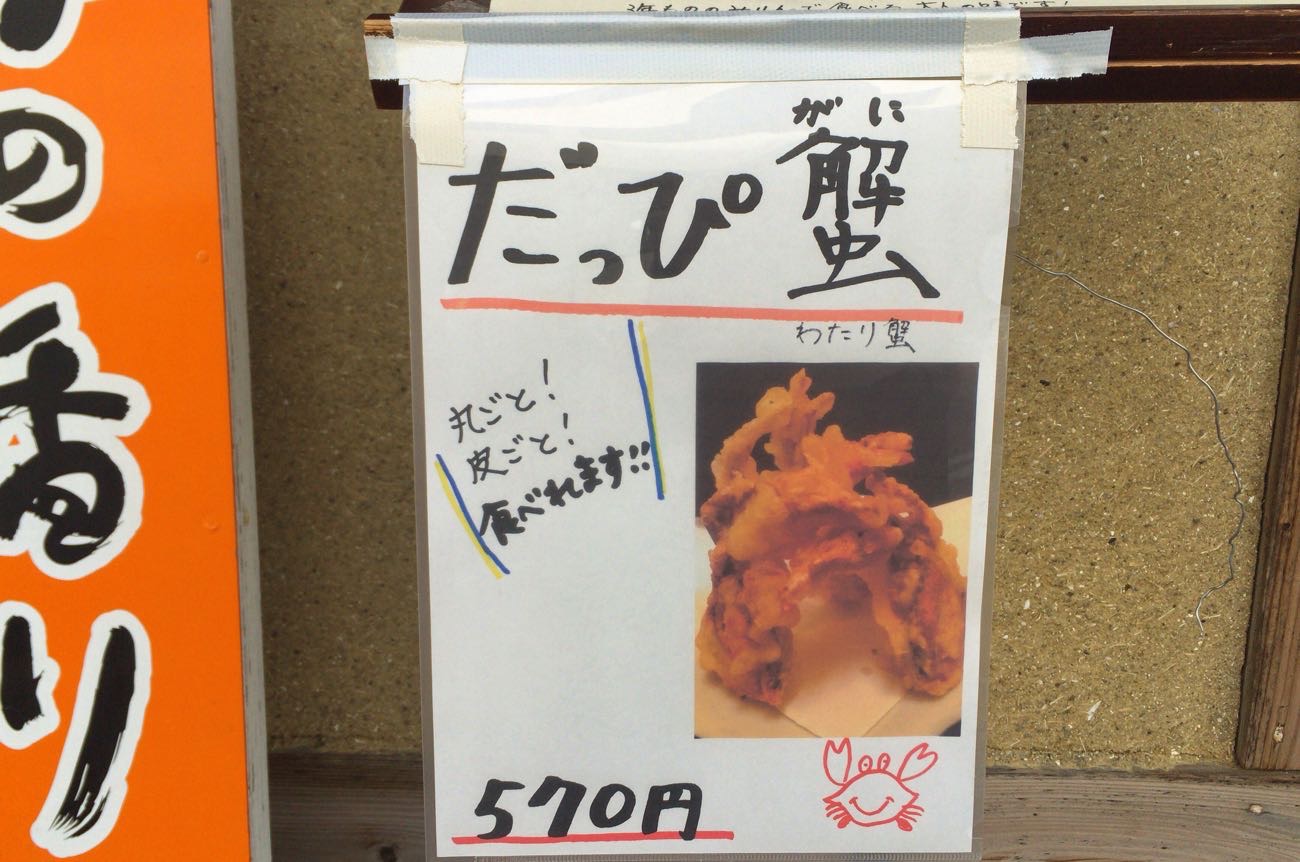 の
香
り
がに
だっぴ蟹
わたり蟹
丸ごと!
皮ごと!
食べれます!!
570円